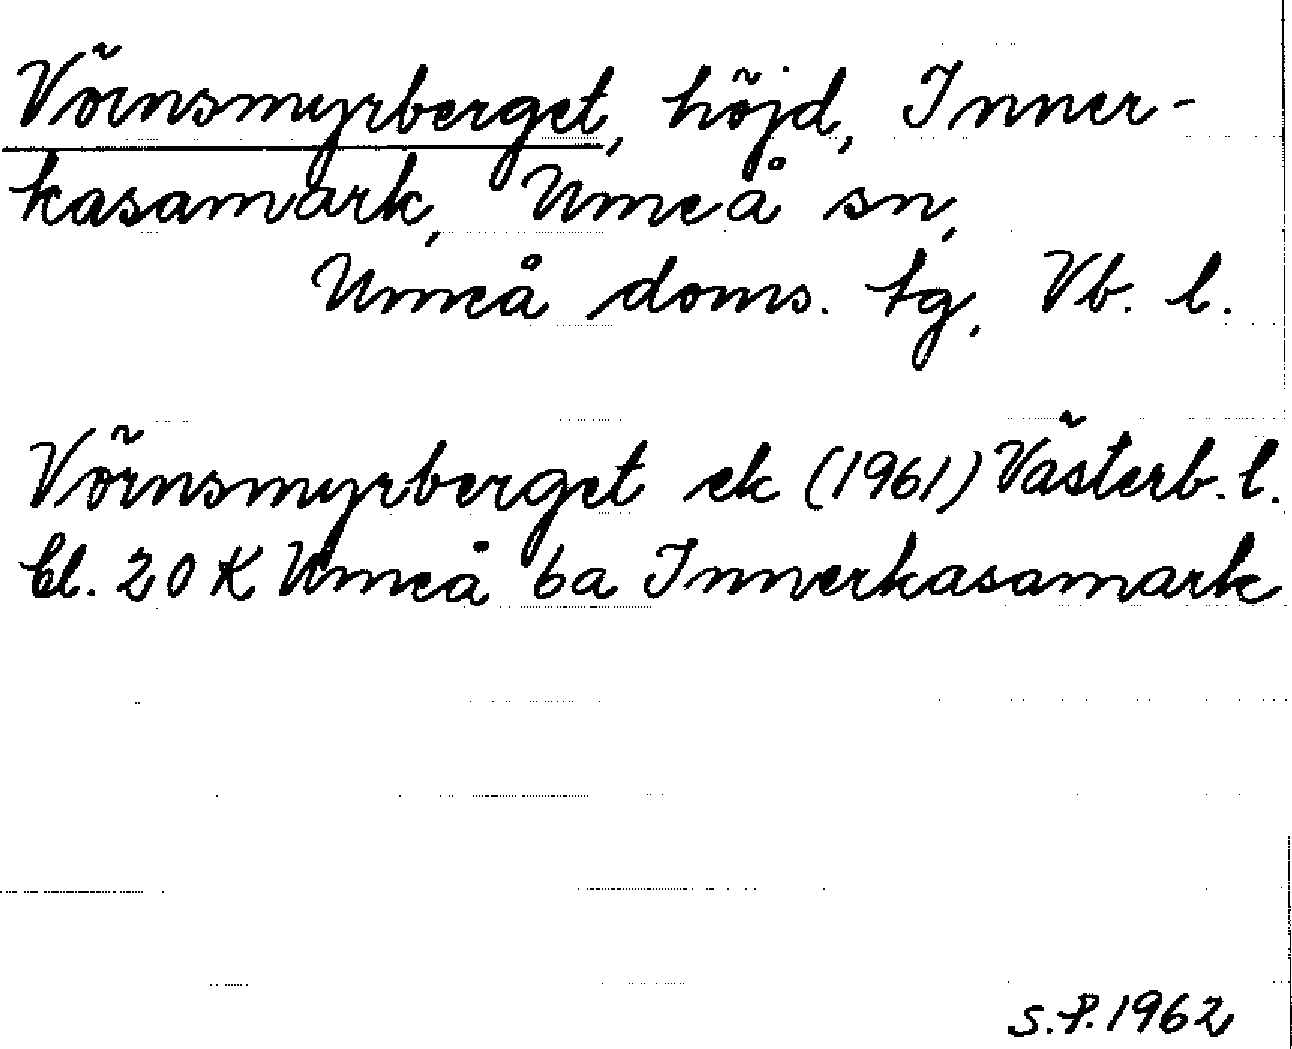 Vörnsmyrberget, höjd, Inner-
kasamark, Umeå sn,
Umeå doms. tg, Vb. l.
Vörnsmyrberget ek (1961) Västerb. l.
bl. 20 K Umeå 6a Innerkasamark
S.P. 1962